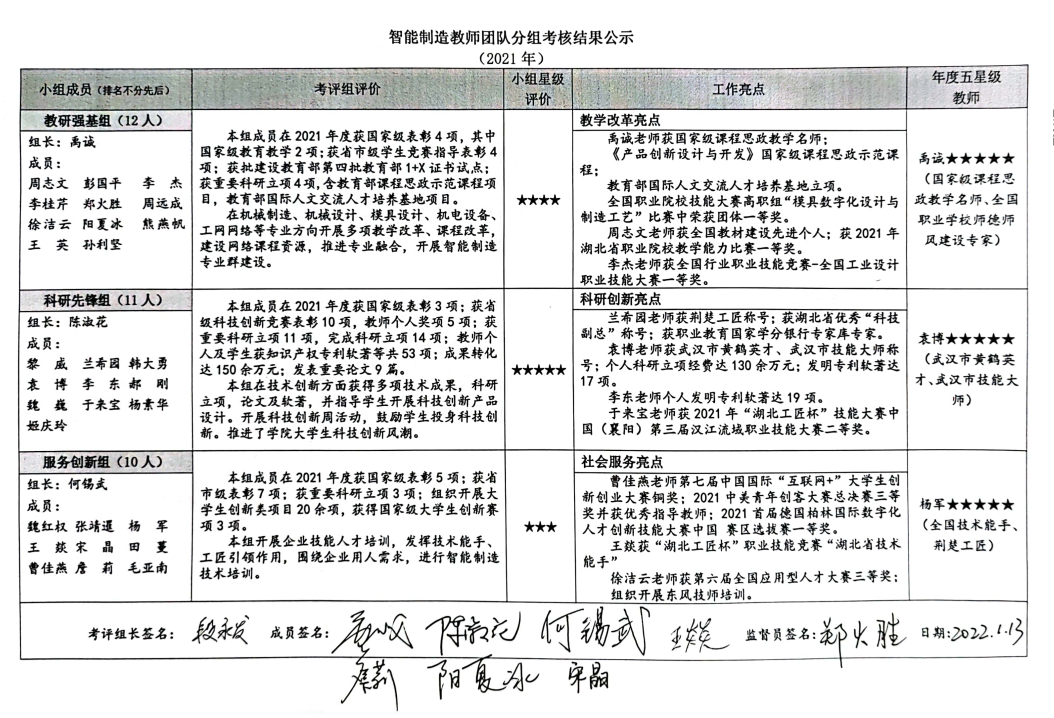 智能制造教师团队分组考核结果公示
（2021 年）
小组成员（排名不分先后）
考评组评价
小组星级
评价
工作亮点
年度五星级
教师
教研强基组（12 人）
组长：禹诚
成员：
周志文 彭国平 李 杰
李桂芹 郑火胜 周远成
徐洁云 阳夏冰 熊燕帆
王 英 孙利坚
本组成员在 2021 年度获国家级表彰 4 项，其中
国家级教育教学 2 项；获省市级学生竞赛指导表彰 4
项；获批建设教育部第四批教育部 1+X 证书试点；
获重要科研立项 4 项，含教育部课程思政示范课程项
目，教育部国际人文交流人才培养基地项目。
在机械制造、机械设计、模具设计、机电设备、
工网网络等专业方向开展多项教学改革、课程改革，
建设网络课程资源，推进专业融合，开展智能制造
专业群建设。
★★★★
教学改革亮点
禹诚老师获国家级课程思政教学名师；
《产品创新设计与开发》国家级课程思政示范课
程；
教育部国际人文交流人才培养基地立项。
全国职业院校技能大赛高职组“模具数字化设计与
制造工艺”比赛中荣获团体一等奖。
周志文老师获全国教材建设先进个人；获 2021 年
湖北省职业院校教学能力比赛一等奖。
李杰老师获全国行业职业技能竞赛-全国工业设计
职业技能大赛一等奖。
禹诚★★★★★
（国家级课程思
政教学名师、全国
职业学校师德师
风建设专家）
科研先锋组（11 人）
组长：陈淑花
成员：
黎 威 兰希园 韩大勇
袁 博 李 东 郝 刚
魏 巍 于来宝 杨素华
姬庆玲
本组成员在 2021 年度获国家级表彰 3 项；获省
级科技创新竞赛表彰 10 项，教师个人奖项 5 项；获
重要科研立项 11 项，完成科研立项 14 项；教师个
人及学生获知识产权专利软著等共 53 项；成果转化
达 150 余万元；发表重要论文 9 篇。
本组在技术创新方面获得多项技术成果，科研
立项，论文及软著，并指导学生开展科技创新产品
设计。开展科技创新周活动，鼓励学生投身科技创
新。推进了学院大学生科技创新风潮。
★★★★★
科研创新亮点
兰希园老师获荆楚工匠称号；获湖北省优秀“科技
副总”称号；获职业教育国家学分银行专家库专家。
袁博老师获武汉市黄鹤英才、武汉市技能大师称
号；个人科研立项经费达 130 余万元；发明专利软著达
17 项。
李东老师个人发明专利软著达 19 项。
于来宝老师获 2021 年“湖北工匠杯”技能大赛中
国（襄阳）第三届汉江流域职业技能大赛二等奖。
袁博★★★★★
（武汉市黄鹤英
才、武汉市技能大
师）
服务创新组（10 人）
组长：何锡武
成员：
魏红权 张靖暹 杨 军
王 燚 宋 晶 田 蔓
曹佳燕 詹 莉 毛亚南
本组成员在 2021 年度获国家级表彰 5 项；获省
市级表彰 7 项；获重要科研立项 3 项；组织开展大
学生创新类项目 20 余项，获得国家级大学生创新赛
项 3 项。
本组开展企业技能人才培训，发挥技术能手、
工匠引领作用，围绕企业用人需求，进行智能制造
技术培训。
★★★
社会服务亮点
曹佳燕老师第七届中国国际“互联网+”大学生创
新创业大赛铜奖；2021 中美青年创客大赛总决赛三等
奖并获优秀指导教师；2021 首届德国柏林国际数字化
人才创新技能大赛中国 赛区选拔赛一等奖。
王燚获“湖北工匠杯”职业技能竞赛“湖北省技术
能手”
徐洁云老师获第六届全国应用型人才大赛三等奖；
组织开展东风技师培训。
杨军★★★★★
（全国技术能手、
荆楚工匠）
考评组长签名： 段永发 成员签名： 陈淑花 何锡武 王燚 监督员签名：郑火胜 日期：2022.1.13
詹莉 阳夏冰 宋晶